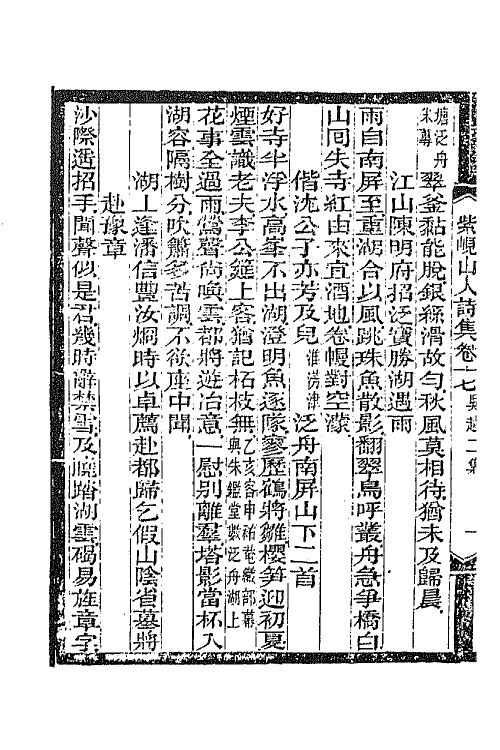 紫峴山人詩集卷十七 吳越二集 一
塘泛舟
朱鷺 翠釜黏能脫銀絲滑故勻秋風莫相待猶未及歸晨
江山陳明府招泛寶勝湖遇雨
雨自南屏至重湖合以風跳珠魚散影翻翠鳥呼叢舟急爭橋白
山回失寺紅由來宜酒地卷幔對空濛
偕沈公子亦芳及兒淮湧津泛舟南屏山下二首
好寺半浮水高峯不出湖澄明魚逐隊寥歷鶴將雛櫻笋迎初夏
煙雲識老夫李公筵上客猶記柘枝無乙亥客申祐菴儀部幕與朱鑑堂數泛舟湖上
花事全過雨鶯聲尚喚雲都將遊冶意一慰別離羣塔影當杯入
湖容隔樹分吹簫多苦調不欲座中聞
湖上逢潘信豐汝烱時以卓薦赴都歸乞假山陰省墓將
赴豫章
沙際遙招手聞聲似是君幾時辭禁雪及曉踏湖雲碣易旌章字